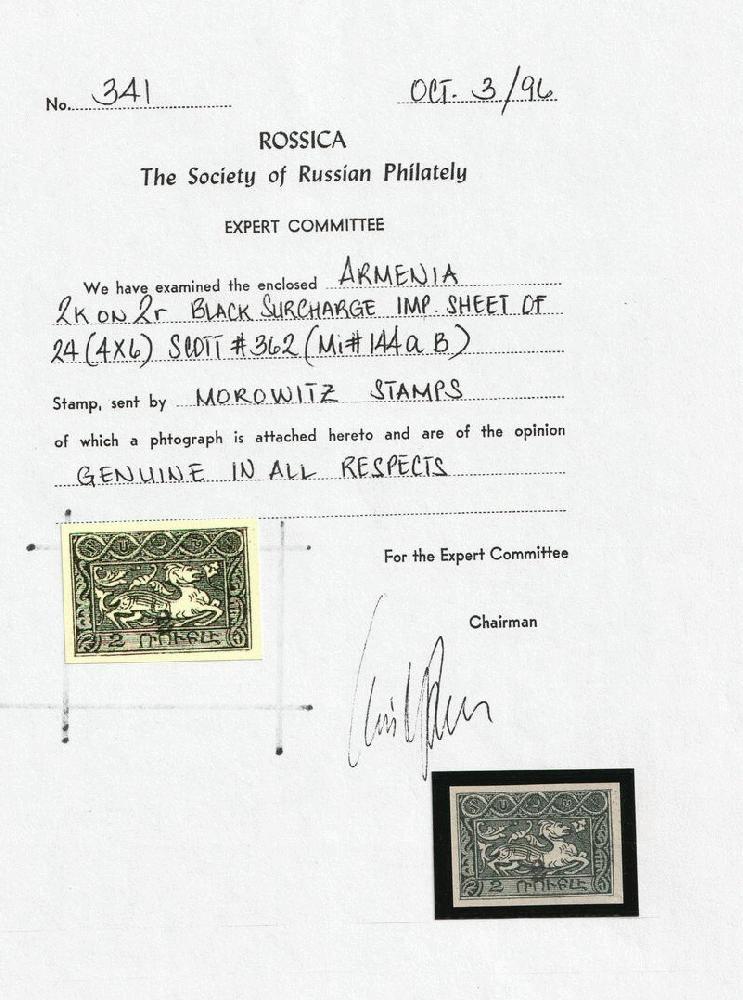 No. 341 OCT. 3/96
ROSSICA
The Society of Russian Philately
EXPERT COMMITTEE
We have examined the enclosed ARMENIA
2K ON 2r BLACK SURCHARGE IMP. SHEET OF
24 (4X6) SCOTT #362 (Mi# 144a B)
Stamp, sent by MOROWITZ STAMPS
of which a phtograph is attached hereto and are of the opinion
GENUINE IN ALL RESPECTS
For the Expert Committee
Chairman
2 ՌՈՒԲԼԻ
2 ՌՈՒԲԼԻ